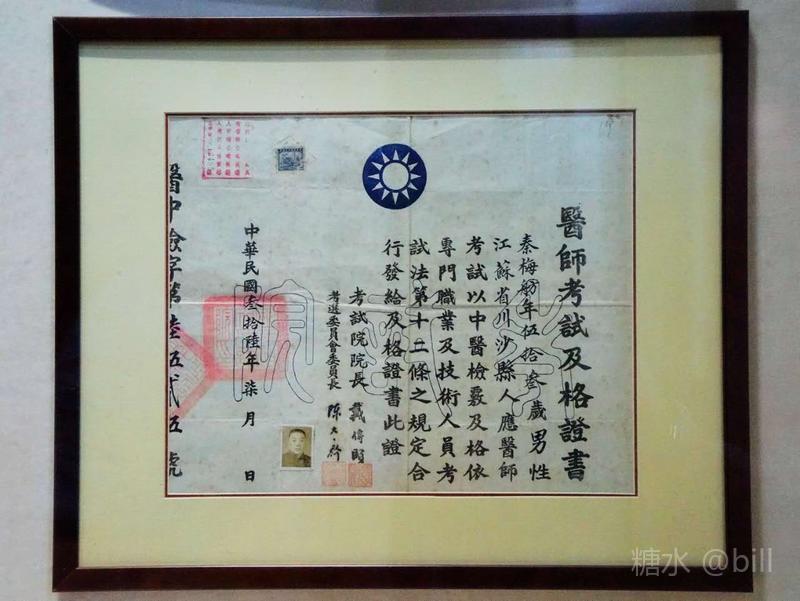 醫師考試及格證書
秦梅舫年伍拾叁歲男性
江蘇省川沙縣人應醫師
考試以中醫檢覈及格依
專門職業及技術人員考
試法第十二條之規定合
行發給及格證書此證
考試院院長 戴傳賢
考選委員會委員長 陳大齊
中華民國叁拾陸年柒月 日
醫中檢字第陸五貳五號
考試院
糖水 @bill